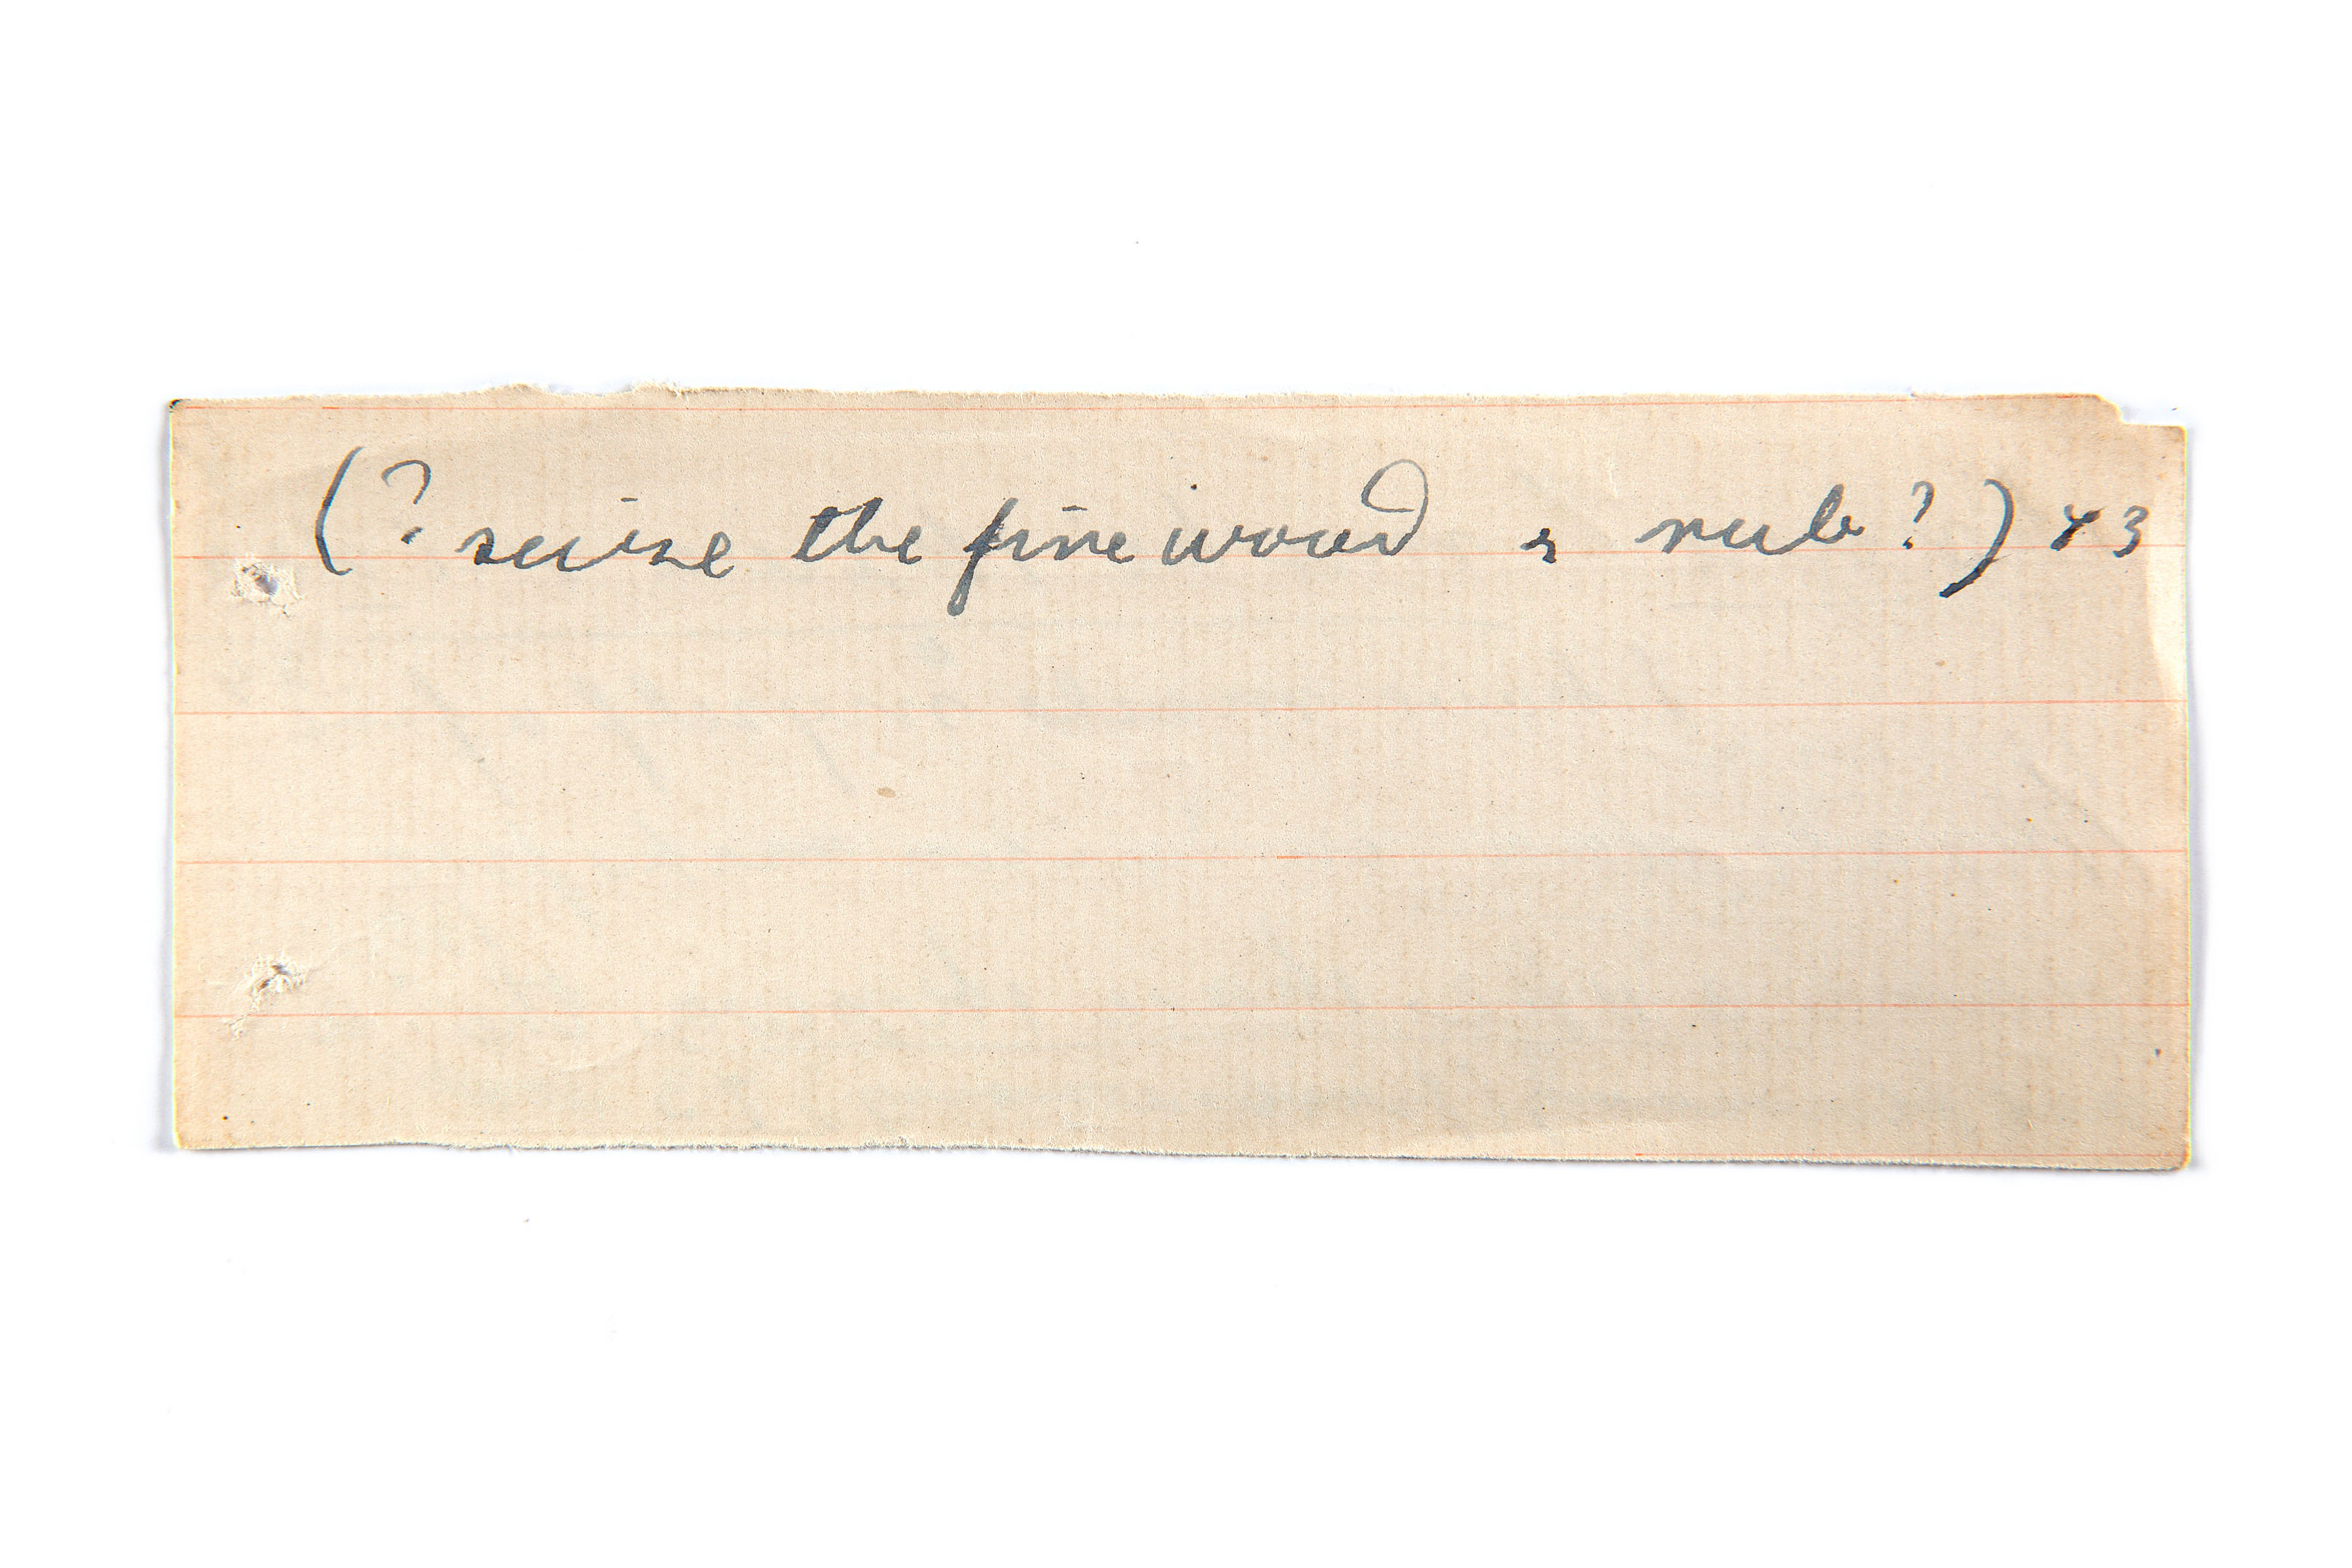 (? seize the firewood & rub?) x3